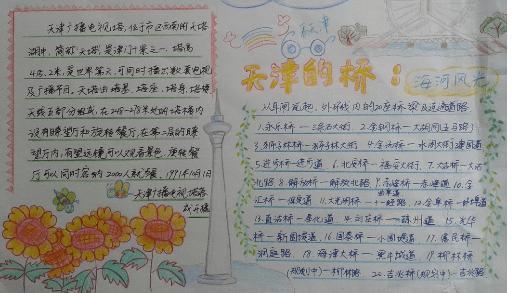 天津广播电视塔，位于市区西南的天塔
湖中，简称天塔，是津门十景之一，塔高
415.2米，是世界第六，可同时播出数套电视
及广播节目，天塔由塔基、塔座、塔身、塔楼
天线五部分组成，在248-278米处的塔楼内
设有瞭望厅和旋转餐厅，在第二层的瞭
望厅内，有望远镜可以观看景色，旋转餐
厅可以同时容纳2000人就餐，1991年10月1日
天津广播电视塔落
成开播
天津的桥：
海河风光
1.永乐桥
2.金钢桥
3.狮子林桥—狮子林大街
4.金汤桥—水阁大街
建国道
5.进步桥—进步道
6.北安桥—福安大街
7.大沽桥—大沽
北路
8.解放桥—解放北路
9.赤峰桥—赤峰道
10.金
汇桥—保定道
11.大光明桥—十一经路
12.金阜桥—蚌埠道
13.直沽桥—奉化道
14.刘庄桥
15.光华
桥
16.国泰桥
17.富民桥—
18.海津大桥
19.柳林桥
(规划中)—柳林路
20.吉兆桥(规划中)—吉兆路